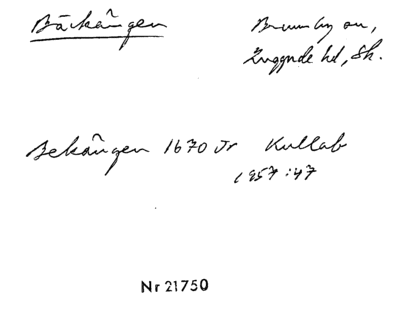 Bäckängen
Brunnby sn,
Luggude hd, Sk.
Bekängen 1670 Jr Kullab
1957:47
Nr 21750